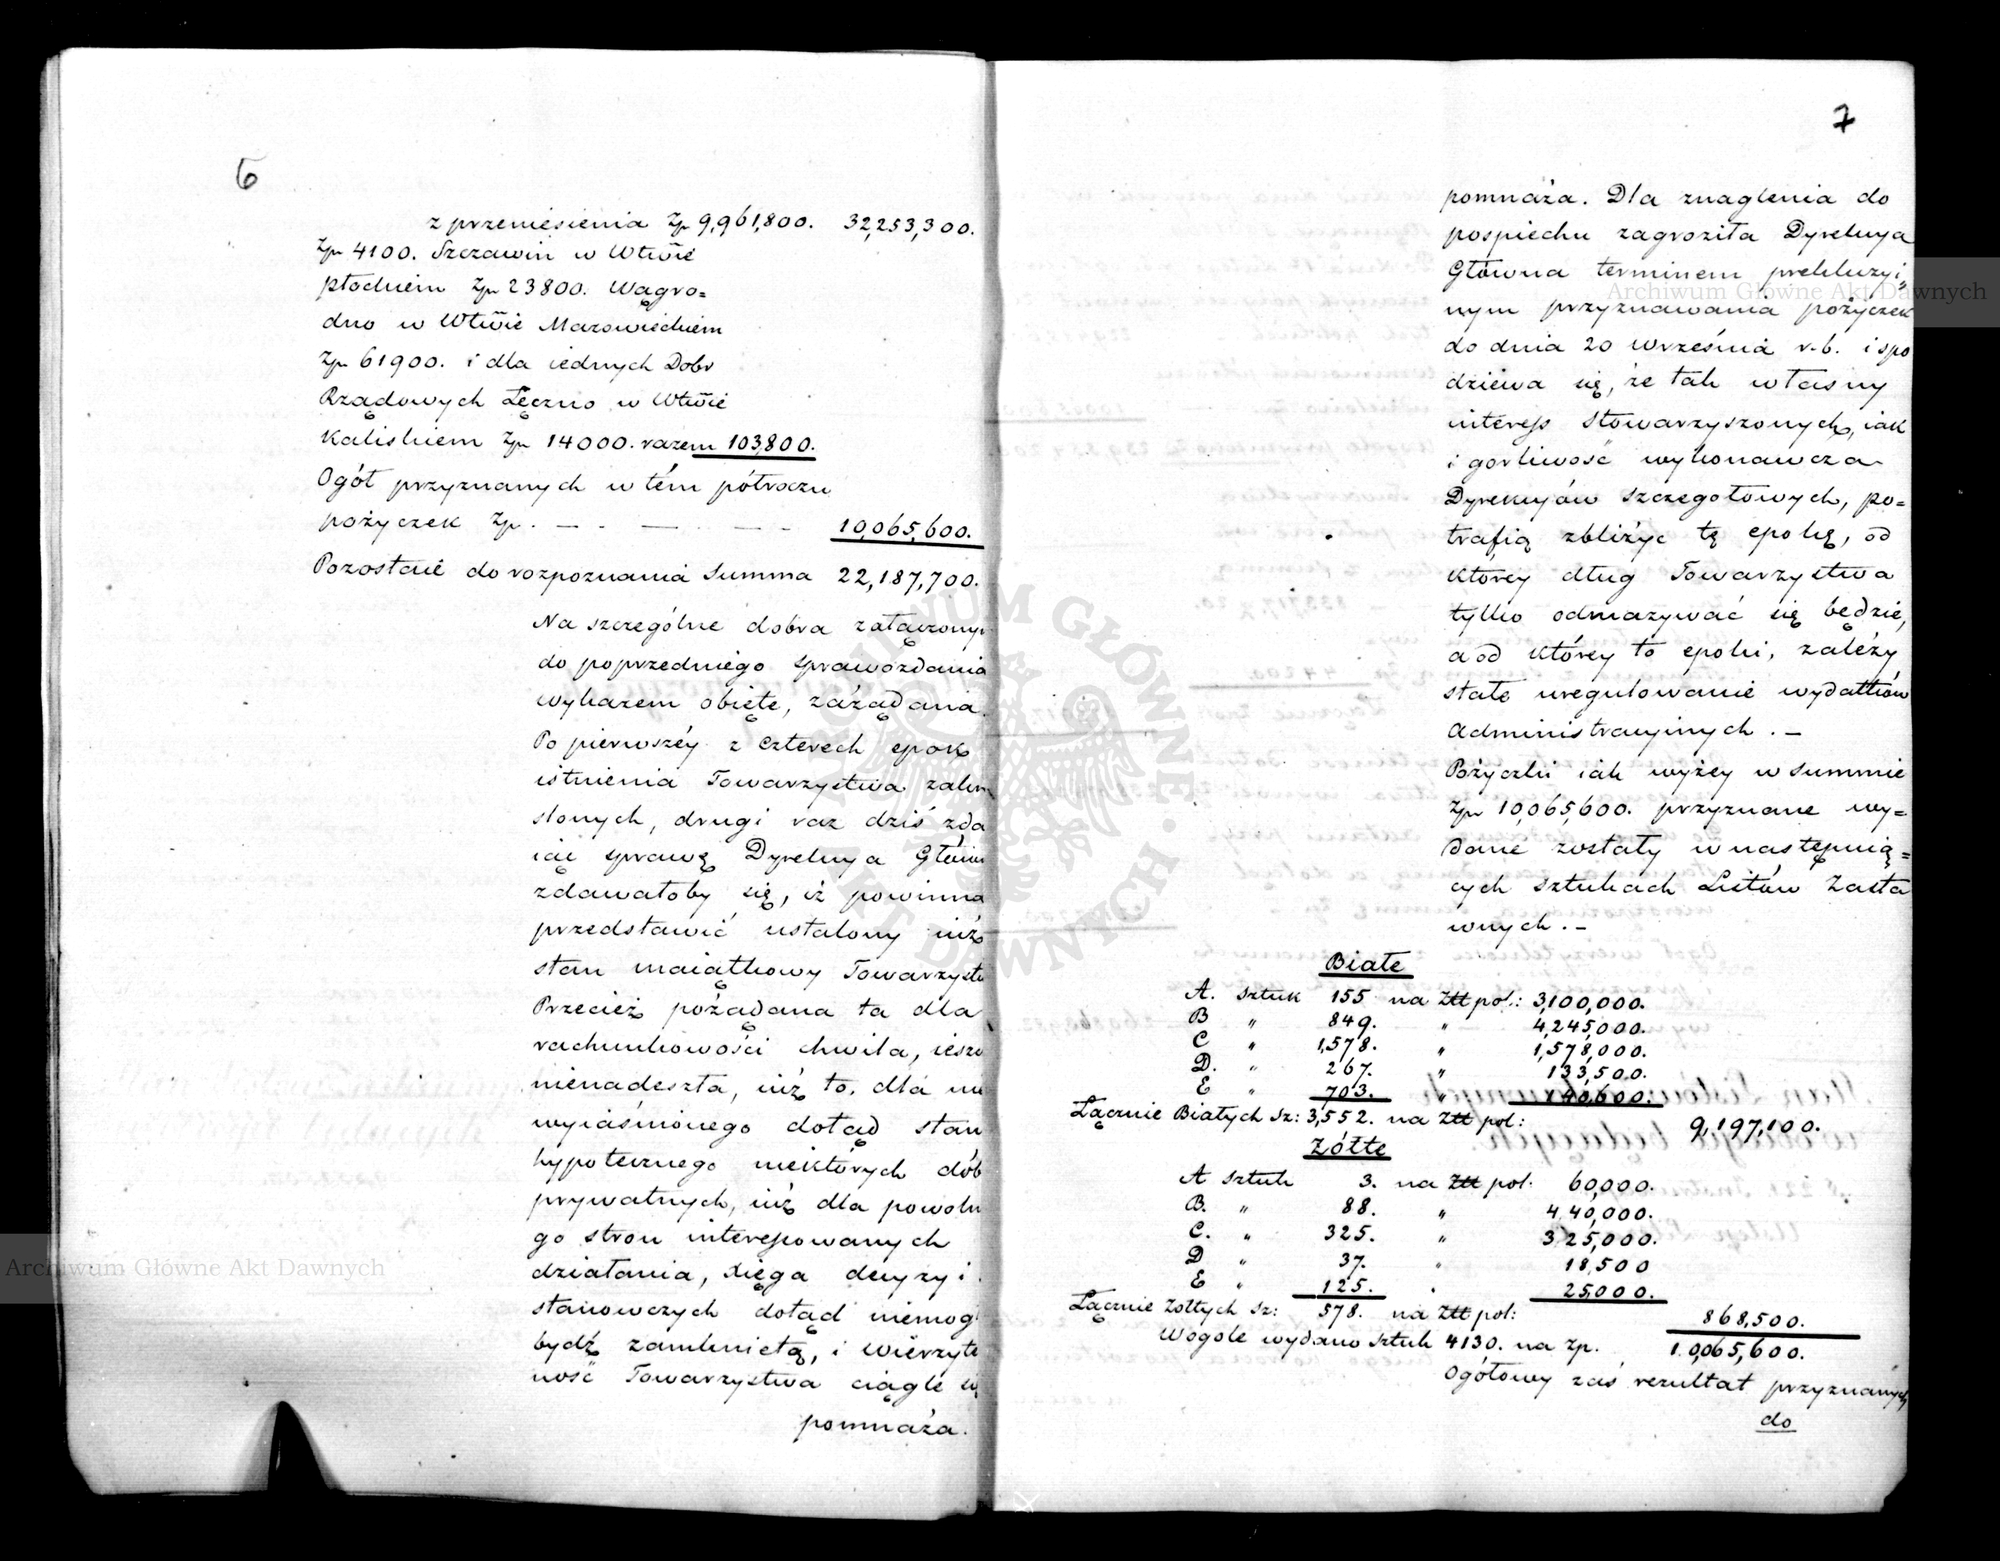 6
z przeniesienia Zp 9,961,800. 32,253,300.
Zp 4100. Szczawin w Wtwie
płockiem Zp 23800. Wągro=
dno w Wtwie Mazowieckiem
Zp 61900. i dla iednych Dobr
Rządowych Łęczno w Wtwie
Kaliskiem Zp 14000. razem 103,800.
Ogół przyznanych w tém półroczu
pożyczek Zp. — - — - - 10,065,600.
Pozostaie do rozpoznania Summa 22,187,700.
Na szczególne dobra załączonym
do poprzedniego sprawozdania
wykazem obięte, zażądana.
Po pierwszéy z czterech epok
istnienia Towarzystwa zakre
slonych, drugi raz dziś zda
iąc sprawę Dyrekcya Główna
zdawałoby się, iż powinna
przedstawić ustalony iuż
stan maiątkowy Towarzystw
Przecież pożądana ta dla
rachunkowości chwila, ieszc
nienadeszła, iuż to, dla nie
wyiaśnionego dotąd stan
hypotecznego niektórych dób
prywatnych, iuż dla powoln
go stron interessowanych
działania, xięga decyzyi
stanowczych dotąd niemog
bydź zamknietą, i wierzyte
ność Towarzystwa ciągle się
pomnaża.
7
pomnaża. Dla znaglenia do
pospiechu zagroziła Dyrekcya
Główna terminem prekluzyi,
nym przyznawania pożyczek
do dnia 20 Września r.b. i spo
dziewa się, że tak własny
interess Stowarzyszonych, iak
i gorliwość wykonawcza
Dyrekcyów szczegołowych, po=
trafią zbliżyc tę epokę, od
któréy dług Towarzystwa
tylko odmazywać się będzie,
a od któréy to epoki, zależy
stałe uregulowanie wydatków
Administracyinych. —
Pożyczki iak wyżéy w summie
Zp 10,065,600. przyznane wy=
dane zostały w następuią=
cych sztukach Listów Zasta
wnych. —
Białe
A. sztuk 155 na Złt pol.: 3,100,000.
B „ 849. „ 4,245,000.
C „ 1,578. „ 1,578,000.
D. „ 267. „ 133,500.
E „ 703. „ 140,600.
Łącznie Białych Sz: 3,552. na Złt pol: 9,197,100.
Żółte
A sztuk 3. na Złt pol: 60,000.
B. „ 88. „ 440,000.
C. „ 325. „ 325,000.
D „ 37. „ 18,500
E „ 125. „ 25000.
Łącznie Żółtych Sz: 578. na Złt pol: 868,500.
Wogóle wydano sztuk 4130. na Zp. 10,065,600.
Ogółowy zaś rezultat przyznanych
do
Archiwum Główne Akt Dawnych
Archiwum Główne Akt Dawnych
ARCHIWUM GŁÓWNE AKT DAWNYCH